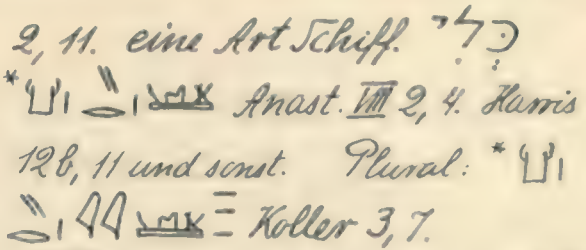 2, 11. eine Art Schiff. כְּלִי
* Anast. VIII 2, 4. Harris
12b, 11 und sonst. Plural: *
Koller 3, 7.